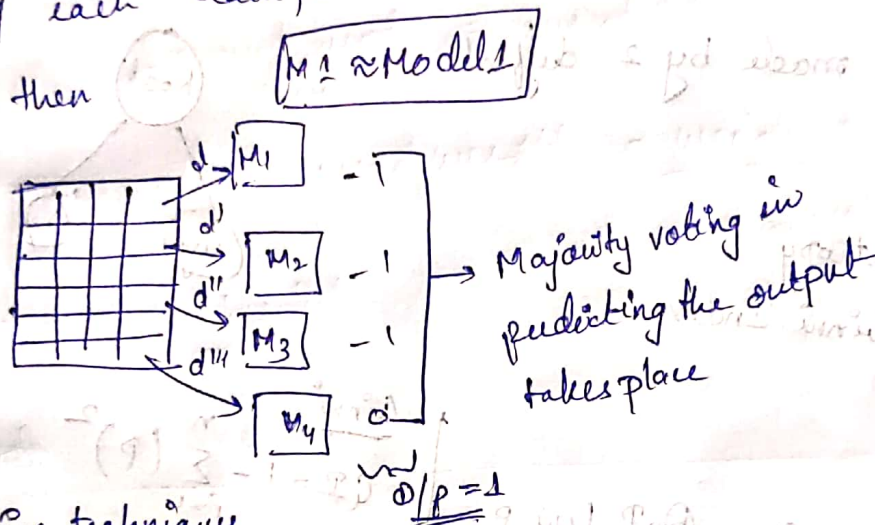 each
M1 ≈ Model1
then
d M1 - 1
d' M2 - 1
d'' M3 - 1
d''' M4 0
Majority voting in
predicting the output
takes place
O/p = 1
technique